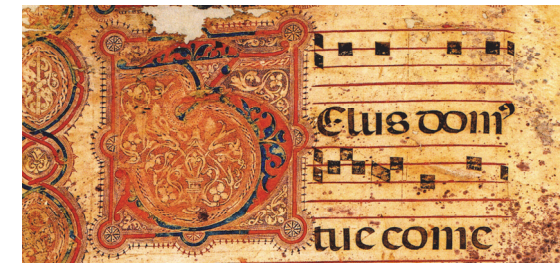 ZElus domꝰ
tue come